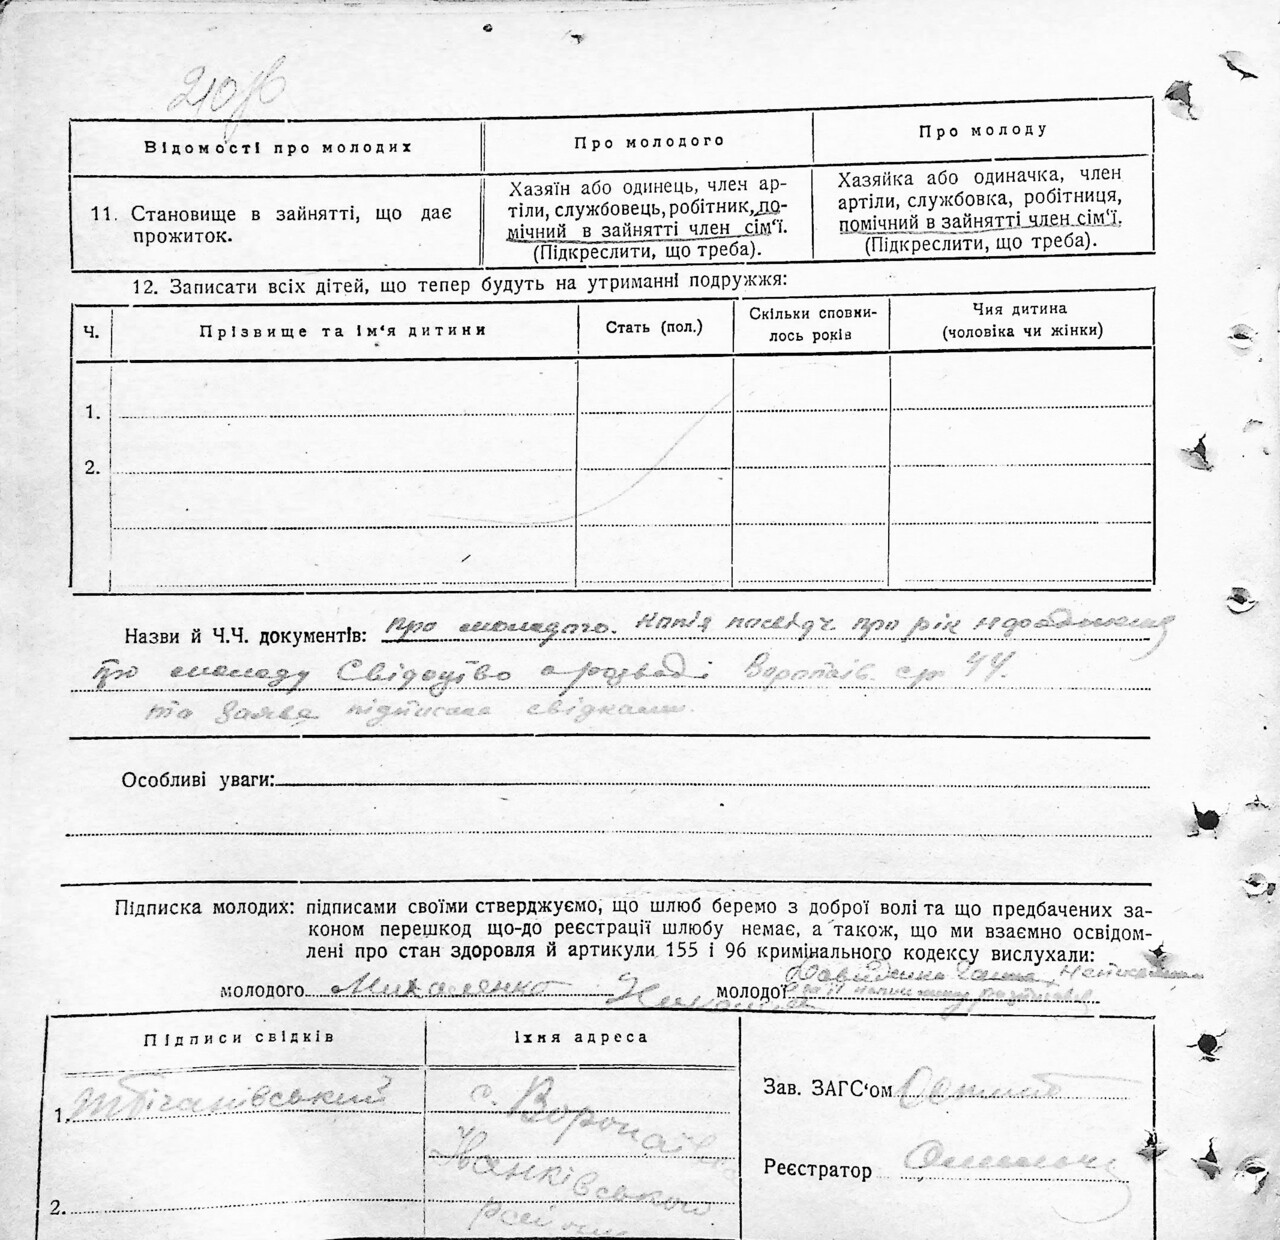 210
Відомості про молодих
Про молодого
Про молоду
11. Становище в зайнятті, що дає
прожиток.
Хазяїн або одинець, член ар-
тіли, службовець, робітник, по-
мічний в зайнятті член сім'ї.
(Підкреслити, що треба).
Хазяйка або одиначка, член
артіли, службовка, робітниця,
помічний в зайнятті член сім'ї.
(Підкреслити, що треба).
12. Записати всіх дітей, що тепер будуть на утриманні подружжя:
Ч.
Прізвище та ім'я дитини
Стать (пол.)
Скільки сповни-
лось років
Чия дитина
(чоловіка чи жінки)
1.
2.
Назви й Ч.Ч. документів: про молодого. Копія посвідч. про рік народження
про молоду Свідоцтво о розводі Воропаїв. с/р 44.
та заява підписана свідками.
Особливі уваги:
Підписка молодих: підписами своїми стверджуємо, що шлюб беремо з доброї волі та що предбачених за-
коном перешкод що-до реєстрації шлюбу немає, а також, що ми взаємно освідом-
лені про стан здоровля й артикули 155 і 96 кримінального кодексу вислухали:
молодого Михаленко
молодої Ганна
Підписи свідків
Їхня адреса
1.
с. Воропаївка
Іванківського
рай
2.
Зав. ЗАГС'ом
Реєстратор